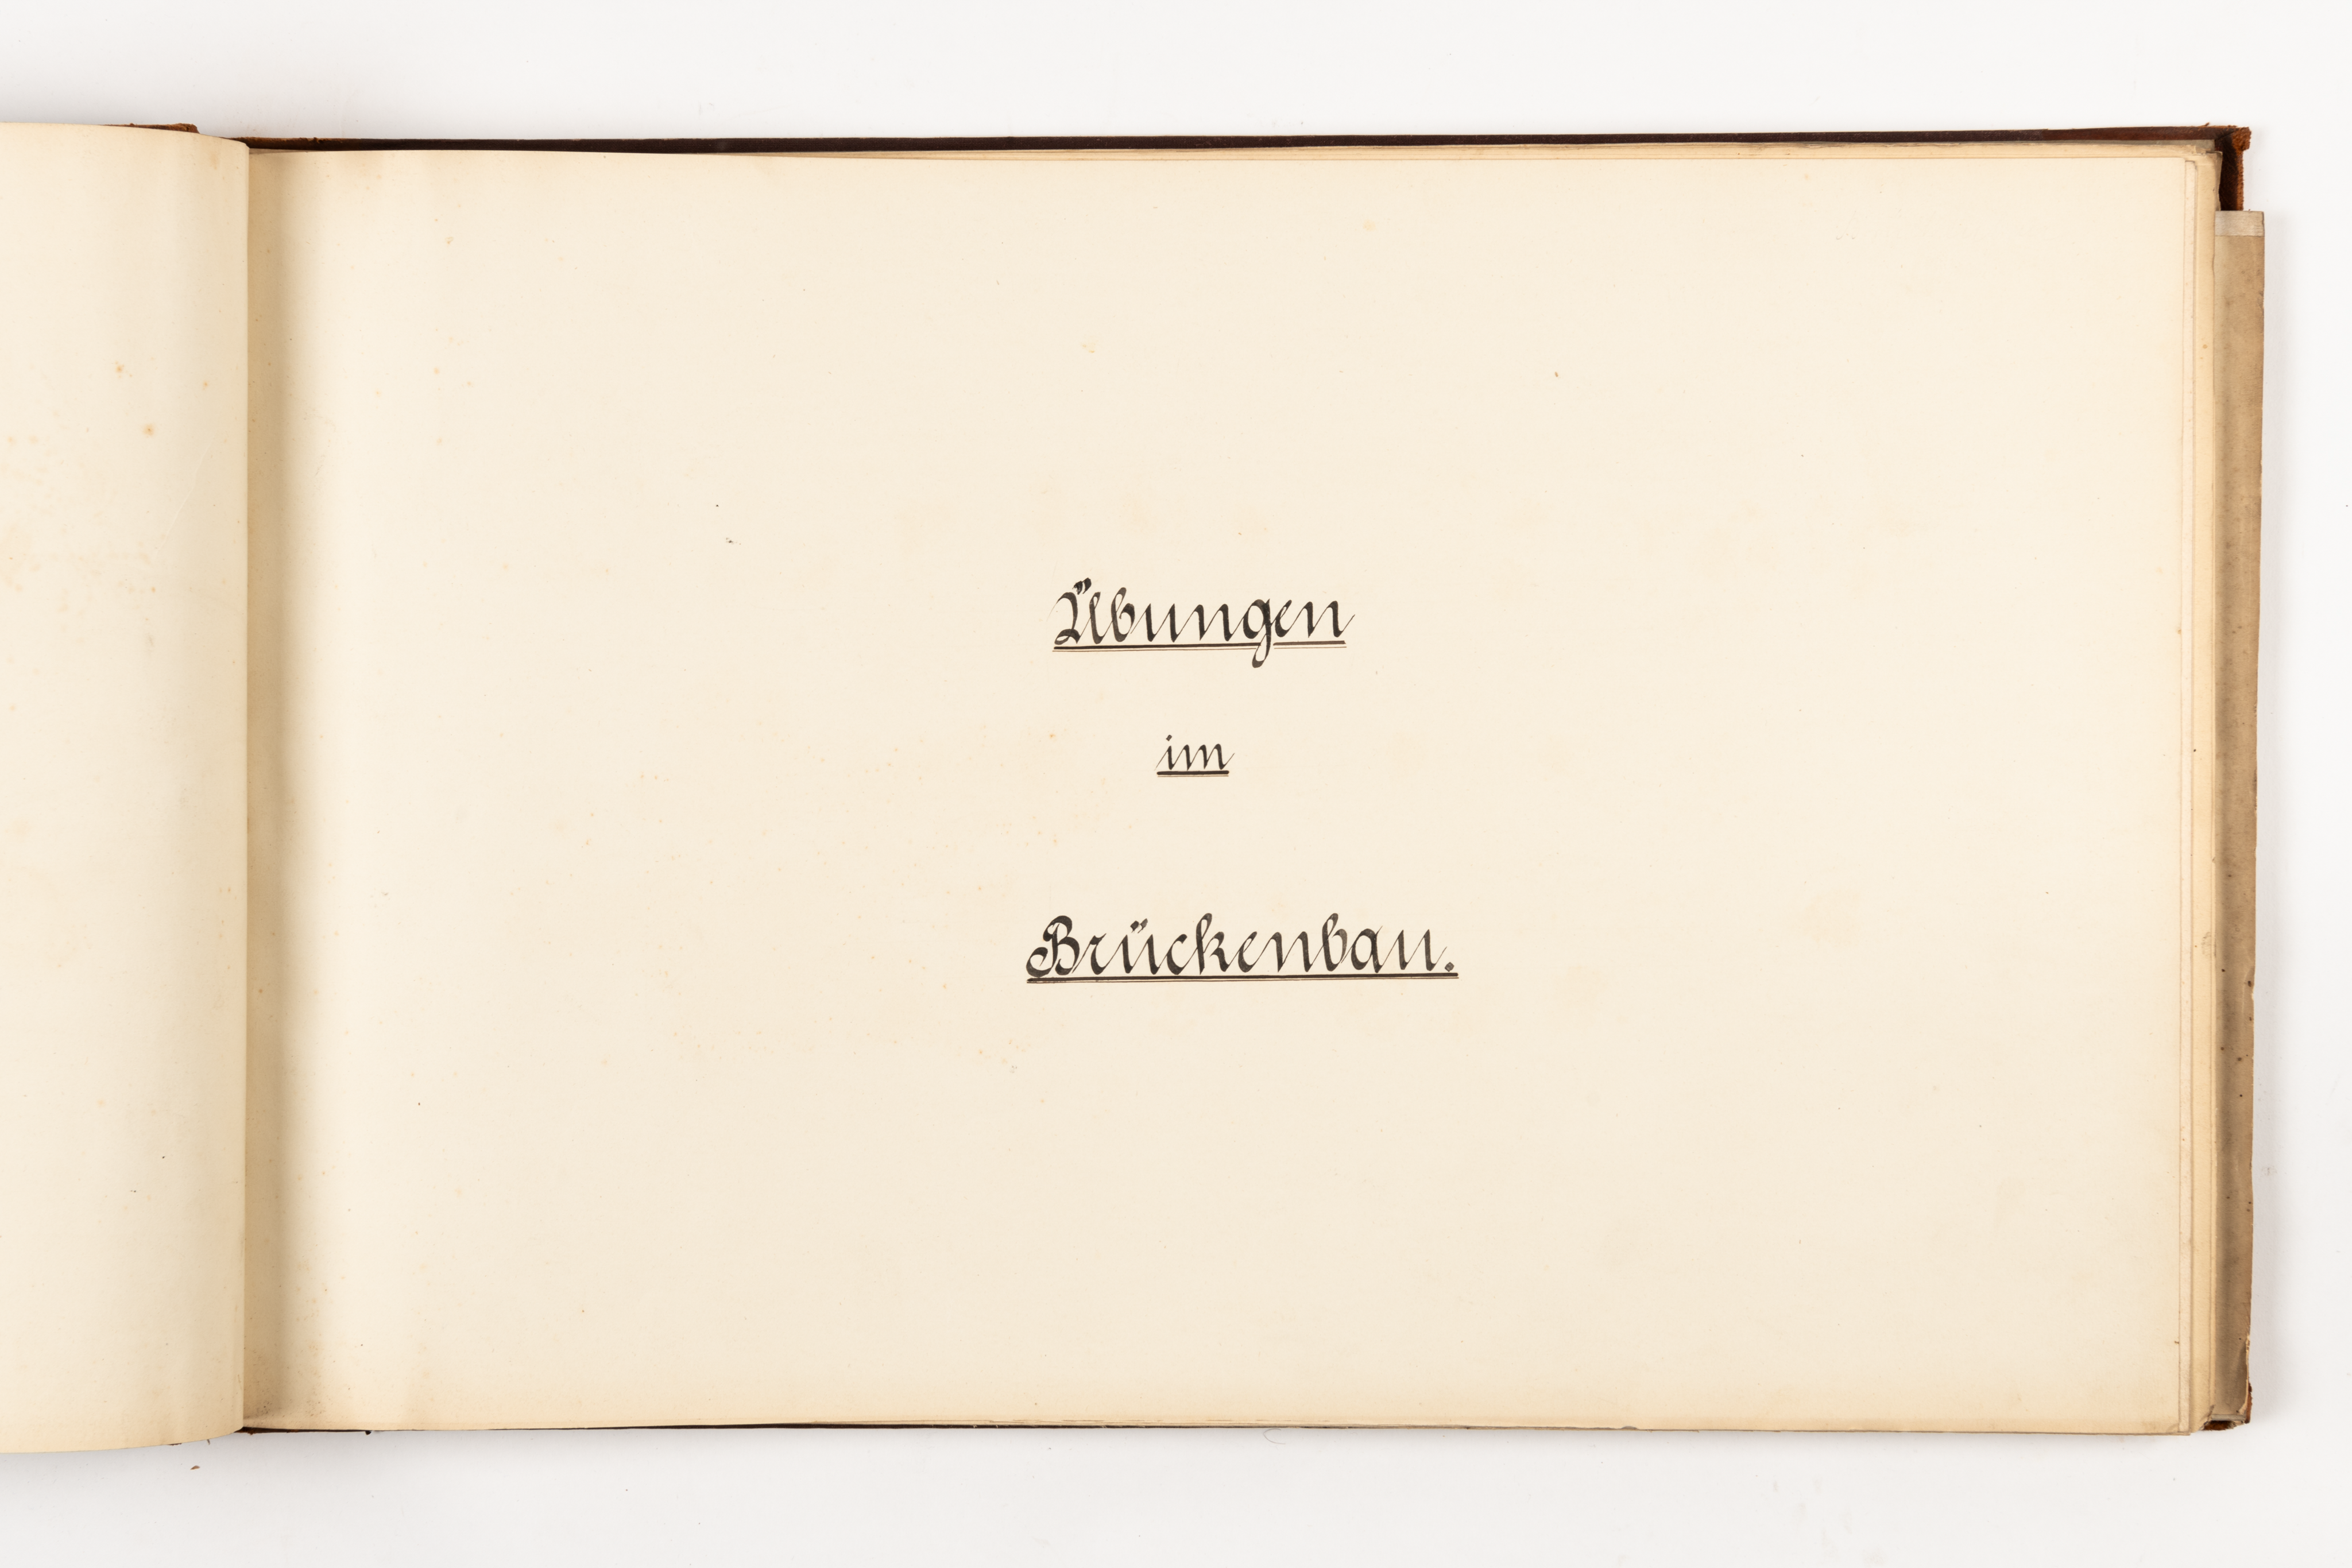 Übungen
im
Brückenbau.